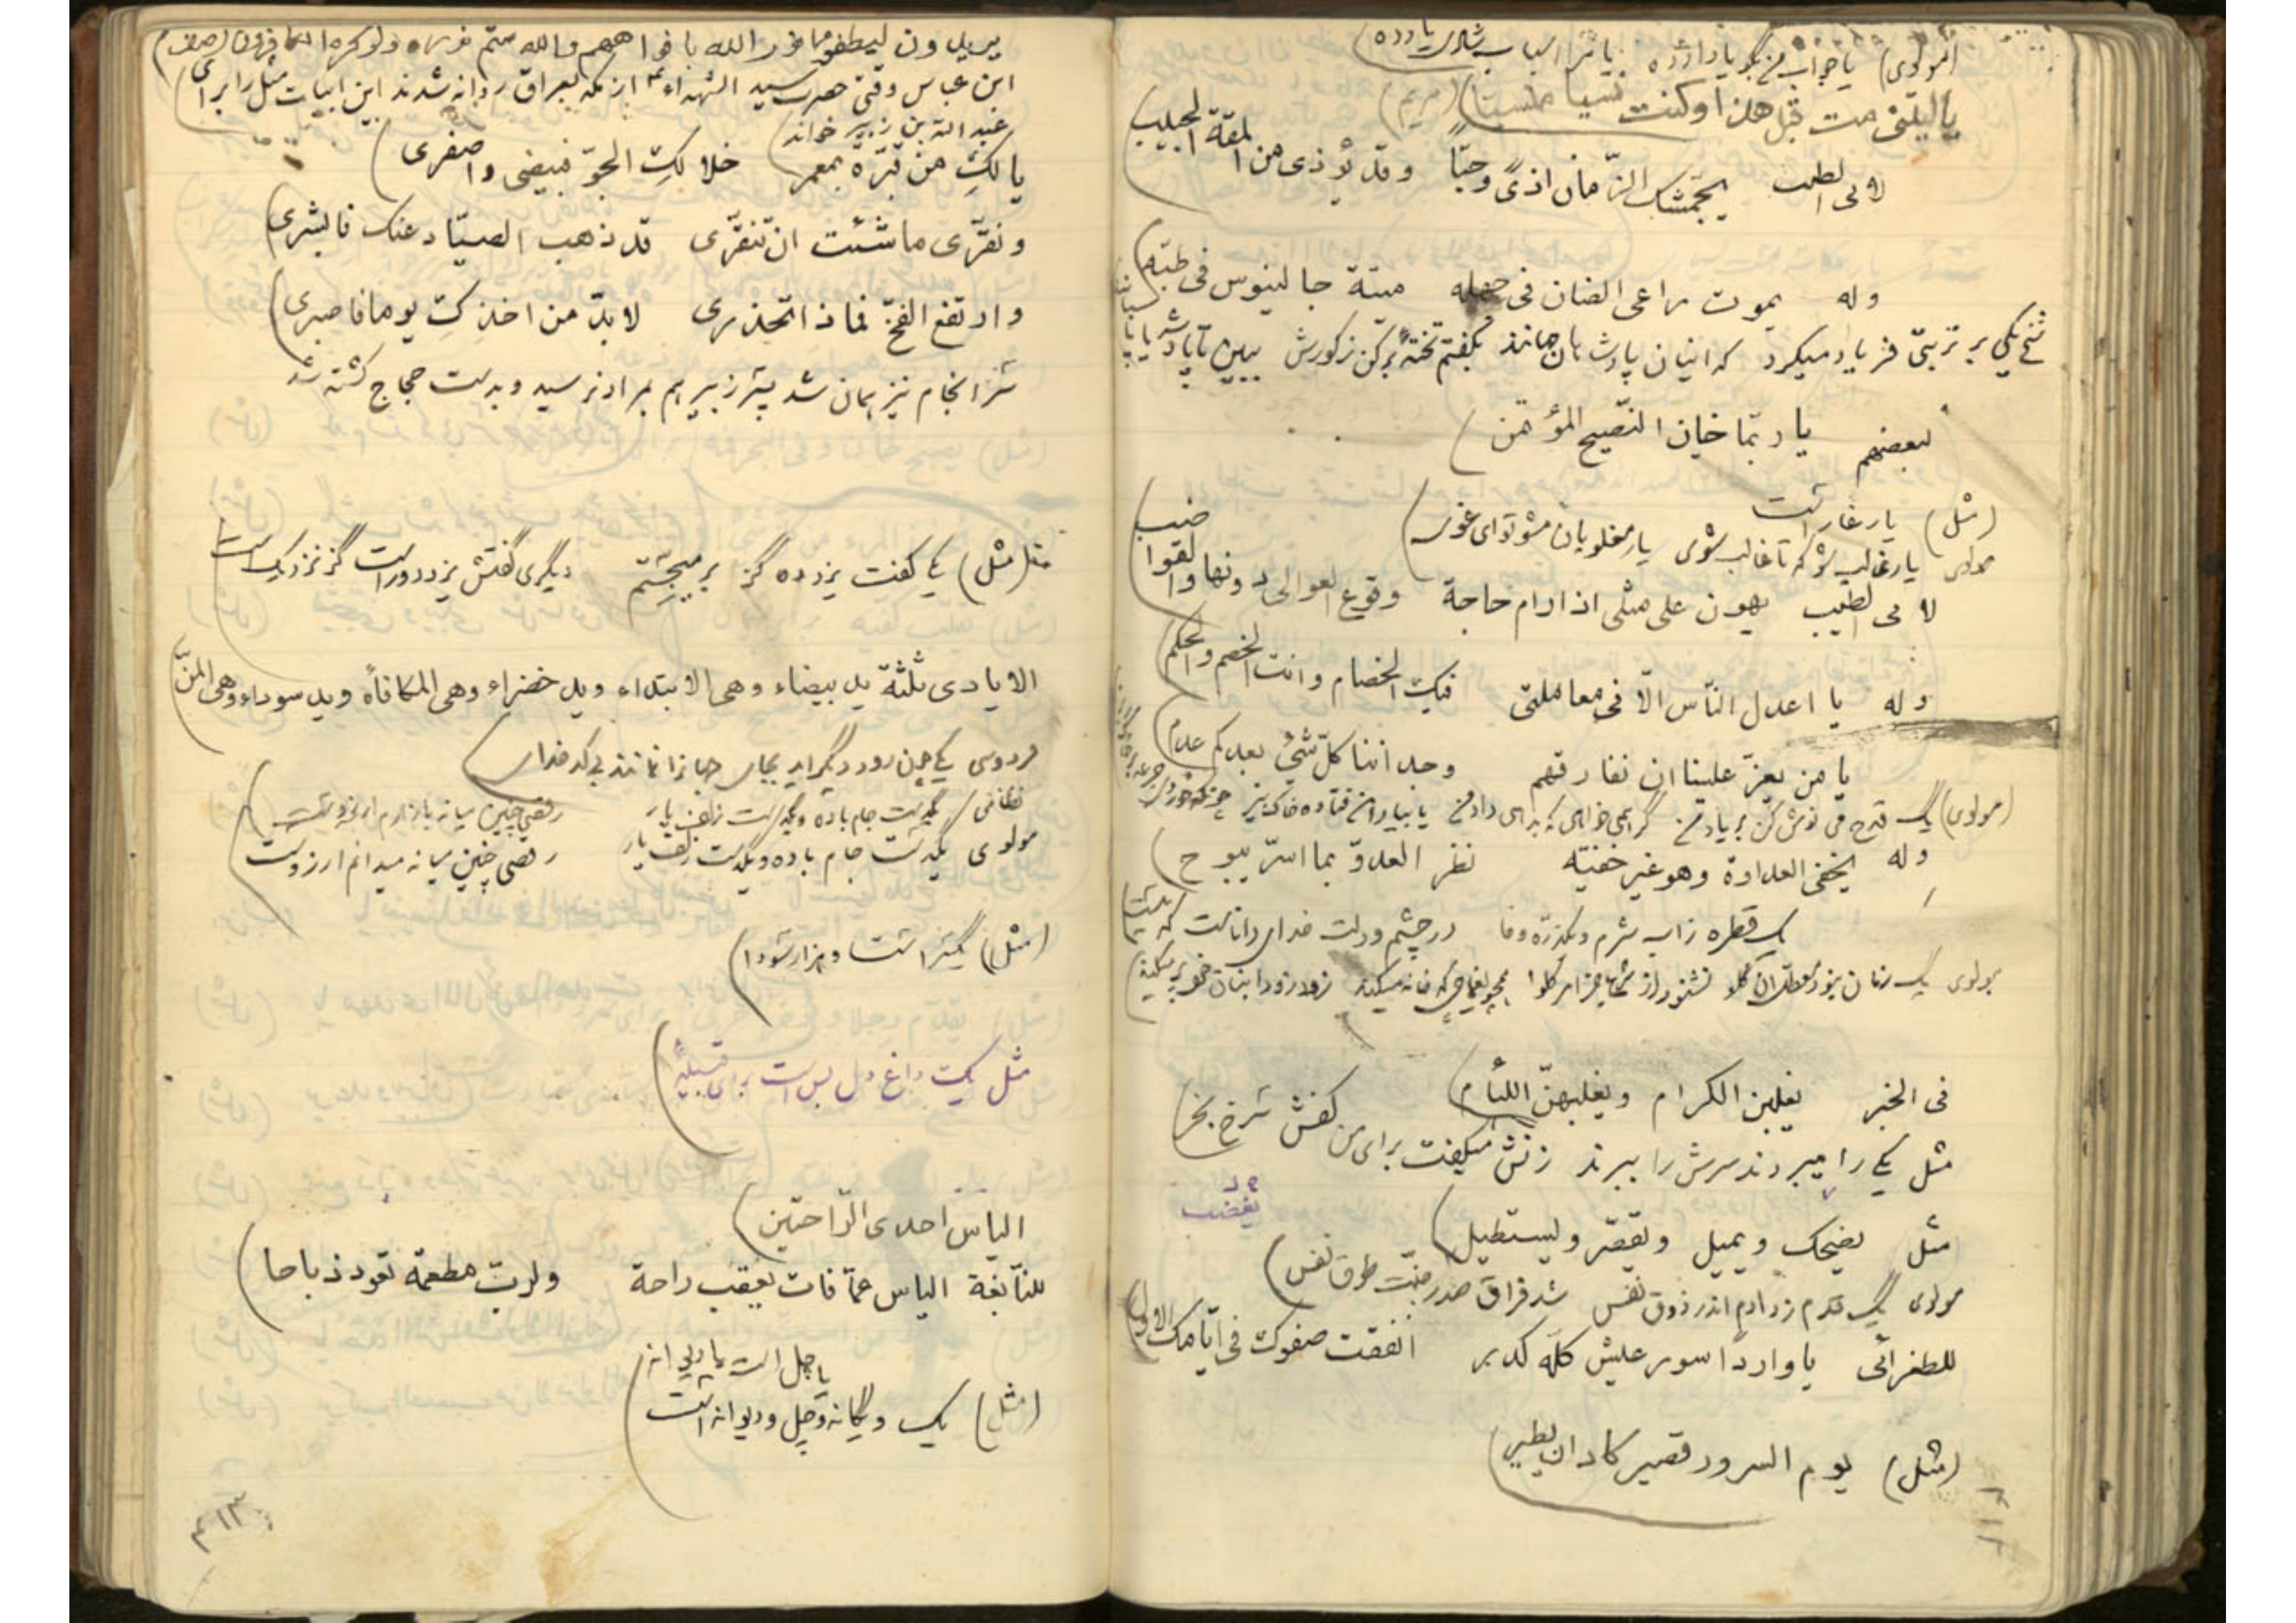 (المولوی) یا جواب من بگو یا داد ده یا ز اسباب شادی یاد ده
یا لیتنی مت قبل هذا وکنت نسیا منسیا (مریم)
لابی الطیب یجمشک الزمان اذیً وحبّاً وقد یؤذی من المقة الحبیب
وله یموت راعی الضان فی جهله میتة جالینوس فی طبّه
یکی بر تربتی فریاد میکرد که اینان پادشاهان جهانند بگفتم تخته برکن ز گورش ببین تا پادشه یا پاسبانند
لبعضهم یا ربّما خان النّصیح المؤتمن
(مثل) یار غار است
مولوی یار غالب شو که تا غالب شوی یار مغلوبان مشو تو ای غوی
لابی الطیب یهون علی مثلی اذا رام حاجة وقوع العوالی دونها والقواضب
وله یا اعدل النّاس الّا فی معاملتی فیک الخصام وانت الخصم والحکم
یا من یعزّ علینا ان نفارقهم وجداننا کلّ شیٔ بعدکم عدم
(مولوی) یک قدح می نوش کن بر یاد من گر همی خواهی که بدهی داد من یا بیاد این فتاده خاک بیز چونکه خوردی جرعه‌ای بر خاک ریز
وله یخفی العداوة وهو غیر خفیّة نظر العدوّ بما اسرّ یبوح
یک قطره ز آب شرم و یکذرّه وفا در چشم و دلت خدای داناست که نیست
مولوی یک زمان
فی الخبر یغلبن الکرام ویغلبهنّ اللئام
مثل یکی را میبردند سرش را ببرند زنش میگفت برای من کفش سرخ بخر
یغضب
مثل یضحک ویمیل ویقصّر ویستطیل
مولوی یک قدم زد آدم اندر ذوق نفس شد فراق صدر جنّت طوق نفس
للطغرائی یا وارداً سور عیش کلّه کدر انفقت صفوک فی ایّامک الاول
(مثل) یوم السرور قصیر کاد ان یطیر
۳۱۲
یریدون لیطفؤا نور الله بافواههم والله متم نوره ولو کره الکافرون (صف)
ابن عباس وقتی حضرت سید الشهداء ع از مکه بعراق روانه شدند این ابیات مثل را برای
عبدالله بن زبیر خواند
یا لکِ من قبّرة بمعمر خلا لکِ الجوّ فبیضی واصفری
ونقّری ما شئت ان تنقّری قد ذهب الصیّاد عنک فابشری
وارتفع الفخّ فماذا تحذری لا بدّ من اخذک یوما فاصبری
سرانجام نیز همان شد پسر زبیر هم بمراد نرسید و بدست حجاج کشته شد
(مثل) یکی گفت یزد ده گز بر میجستم دیگری گفتش یزد دور است گز نزدیک است
الایادی ثلثة ید بیضاء وهی الابتداء وید خضراء وهی المکافأه وید سوداء وهی المنّ
فردوسی یکی چون رود دیگر آید بجای جهانرا نمانند بی کدخدای
نظامی یکدست جام باده و یکدست زلف یار رقصی چنین میانه بازارم آرزوست
مولوی یکدست جام باده و یکدست زلف یار رقصی چنین میانه میدانم آرزوست
(مثل) یکسر است و هزار سودا
مثل یک داغ دل بس است برای قبیلهٔ
الیاس احدی الرّاحتین
للنّابغة الیاس عمّا فات یعقب راحة ولربّ مطعمة تعود ذباحا
یا چل است یا دیوانه
(مثل) یک و یگانه و چل و دیوانه است
۳۱۳